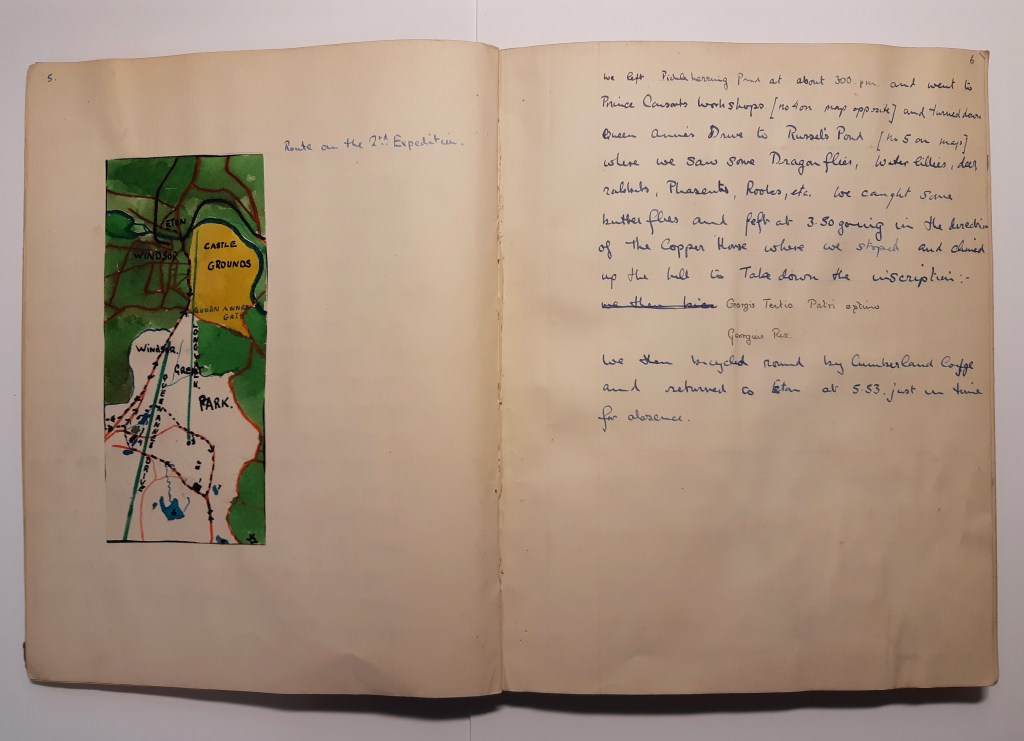 5.
Route on the 2nd Expedition.
ETON
CASTLE
WINDSOR
GROUNDS
QUEEN ANNES
GATE
LONG WALK
WINDSOR.
GREAT
PARK.
QUEEN ANNES DRIVE
6
we left Pickleherring Pond at about 300.pm. and went to
Prince Consorts Workshops [no 4 on map opposite] and turned down
Queen Annes Drive to Russels Pond [No 5 on map]
where we saw some Dragonflies, Water Lillies, deer
rabbits, Phasents, Rooks, etc. We caught some
butterflies and left at 3.50 going in the direction
of The Copper Horse where we stoped and climed
up the hill to Take down the inscription:-
we then
Georgio Tertio Patri optimo
Georgius Rex.
We then bicycled round by Cumberland Lodge
and returned to Eton at 5.53. just in time
for absence.